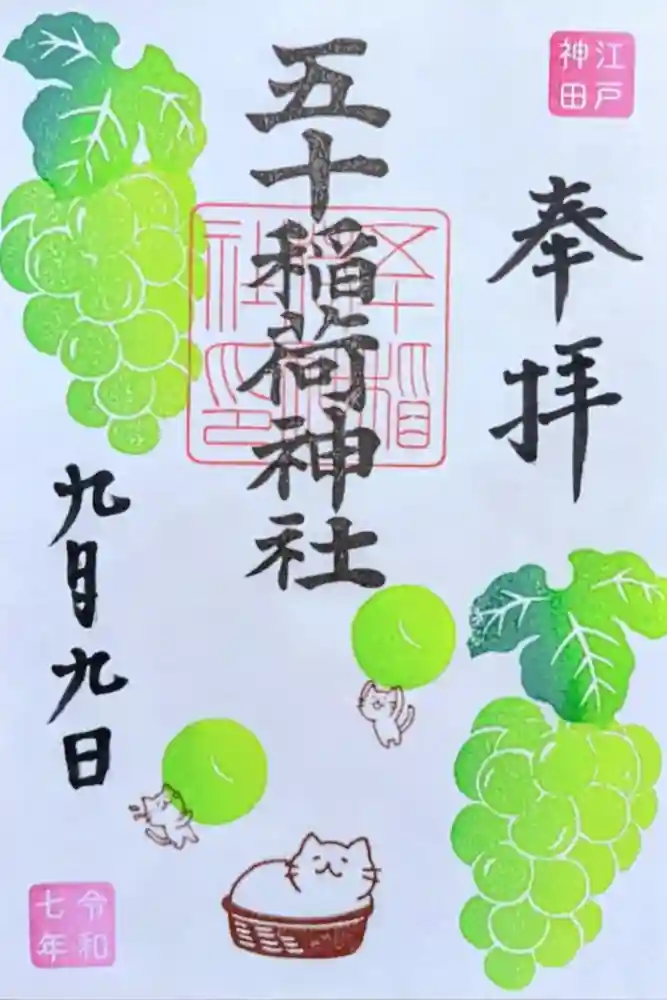 江戸
神田
奉拝
五十稲荷神社
五十稲荷神社印
九月九日
令和
七年